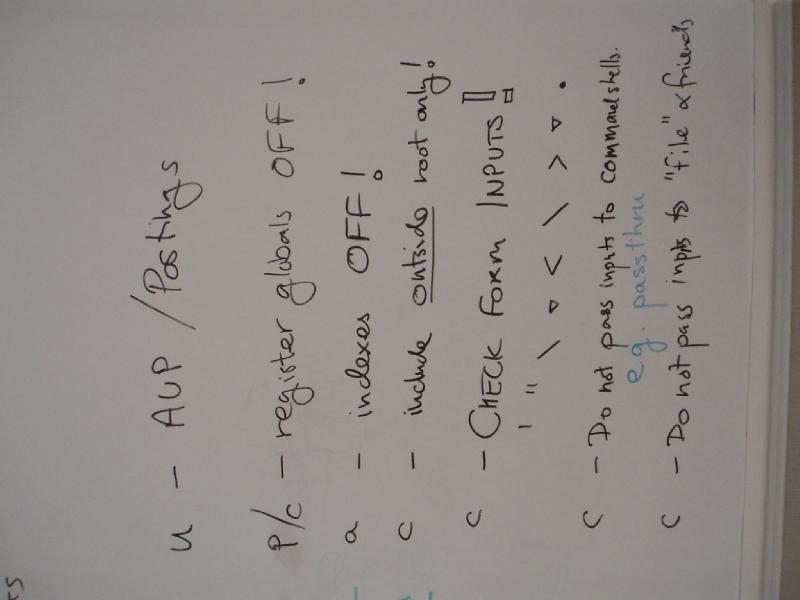 u - AUP / Postings
P/c - register globals OFF!
a - indexes OFF!
c - include outside root only!
c - CHECK FORM INPUTS!
' " \ ▿ < \ > ▿ .
c - Do not pass inputs to commandshells.
e.g. passthru
c - Do not pass inpts to "file" & friends